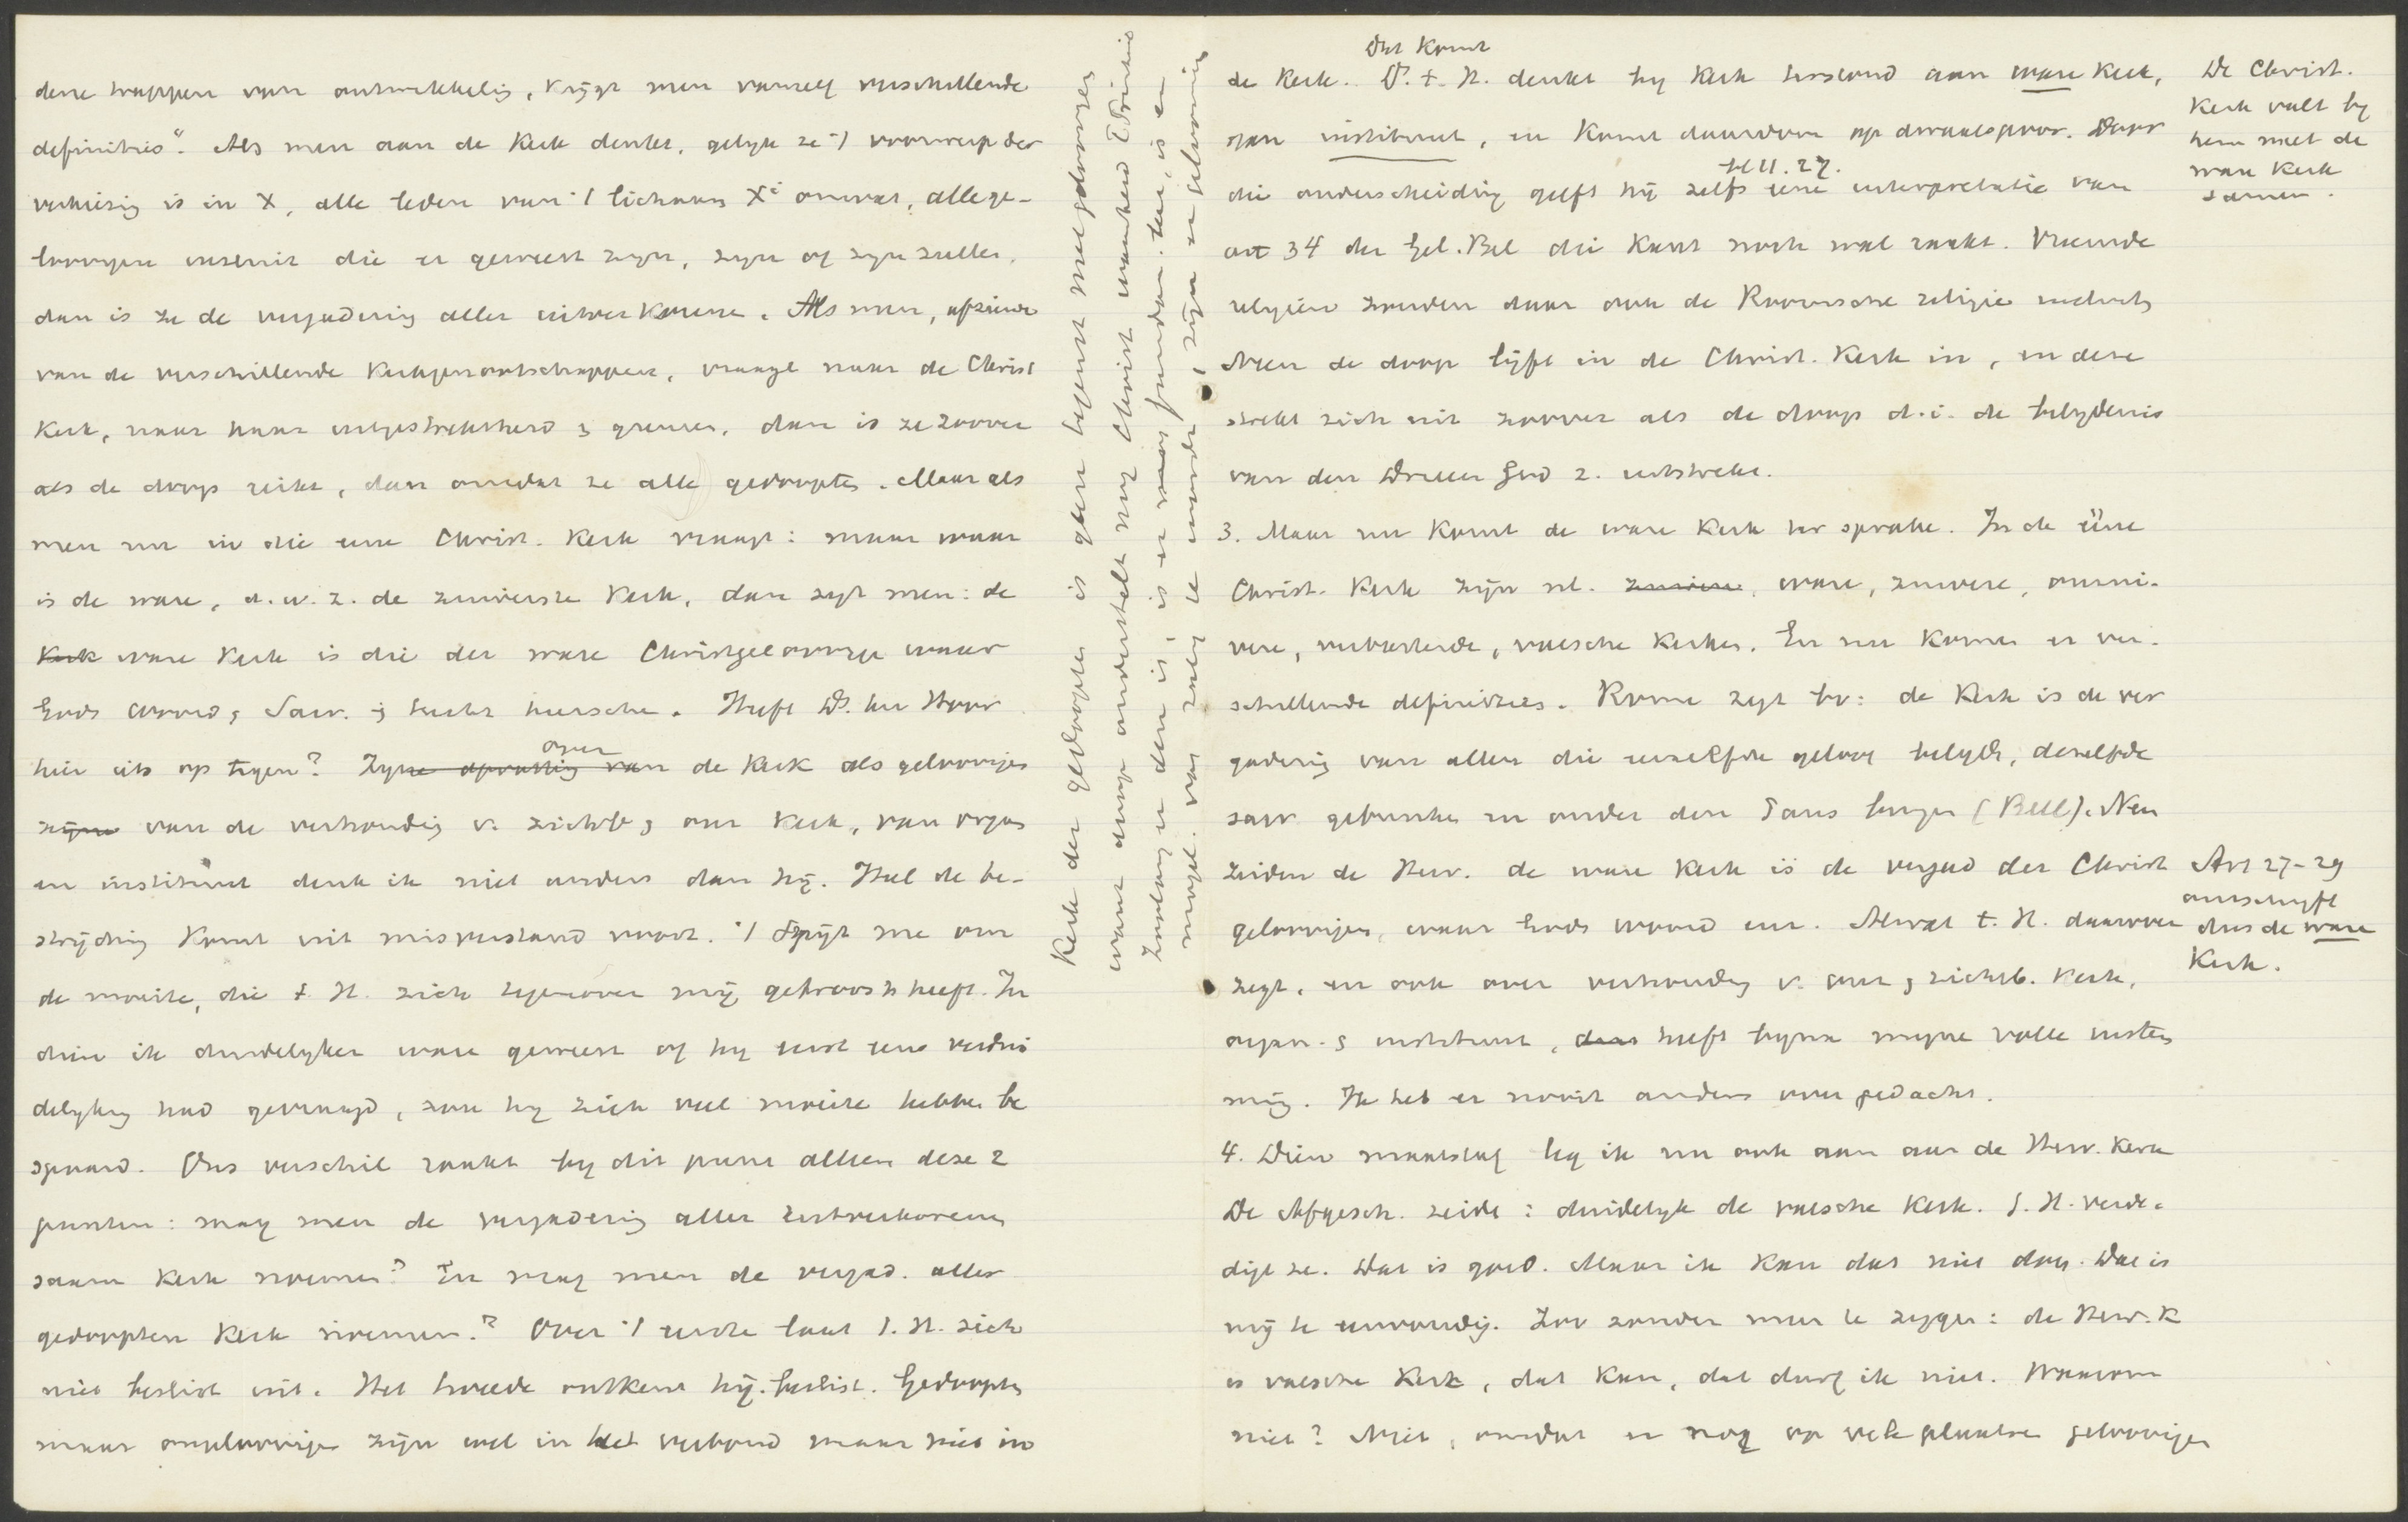 dene trappen van ontwikkelig, krijgt men vanzelf verschillende
definities". Als men aan de Kerk denkt, gelyk ze 't voorwerp der
verkiezig is in X, alle leden van 't lichaam Xi omvat, alle ge-
loovigen insluit die er geweest zyn, zyn of zyn zullen,
dan is ze de vergaderig aller uitverkorene. Als men, afziende
van de verschillende Kerkgenootschappen, vraagt naar de Christ
Kerk, naar haar uitgestrektheid & grenzen, dan is ze zoover
als de doop reikt, dan omvat ze alle gedoopten. Maar als
men nu in die eene Christ. Kerk vraagt: maar waar
is de ware, d.w.z. de zuiverste Kerk, dan zegt men: de
Kerk ware Kerk is die der ware Christgeloovige waar
Gods woord, Sacr. & tucht heersche. Heeft Ds. ten Hoor
hier iets op tegen? Zyne opvattig van over de Kerk als geloovigen
zijne van de verhoudig v. zichtb & onz Kerk, van organ
en instituut denk ik niet anders dan hij. Heel de be-
strijdig komt uit misverstand voort. 't Spijt me om
de moeite, die t. H. zich tegenover mij getroost heeft. In
dien ik duidelyker ware geweest of hy eerst eens verdui
delyking had gevraagd, zou hy zich veel moeite hebben be
spaard. Ons verschil raakt by dit punt alleen deze 2
punten: mag men de vergaderig aller uitverkorenen
saam Kerk noemen? En mag men de vergad. aller
gedoopten Kerk noemen? Over 't eerste laat t. H. zich
niet beslist uit. Het tweede ontkent hij beslist. Gedoopten
maar ongeloovigen zijn wel in het verbond maar niet in
Kerk der gedoopten is geen tegenst met geloovigen
want doop onderstelt nog Christ waarheid & Trinit
Zoolang er deze is, is er nog fundam. kan, is er
mogel. van zalig te worden, zijn er geloovig
Dat komt
de Kerk. D. t. H. denkt by Kerk terstond aan ware Kerk,
aan instituut, en komt daardoor op dwaalspoor. Door
die onderscheidig geeft hij zelfs eene interpretatie van
art 34 der Gel. Bel die kant noch wal raakt. Vreemde
religiën zouden daar ook de Roomsche religie insluit
Neen de doop lijft in de Christ. Kerk in, en deze
strekt zich uit zoover als de doop d.i. de belydenis
van den Drieeen God z. uitstrekt.
3. Maar nu komt de ware Kerk ter sprake. In de ééne
Christ. Kerk zijn nl. zuivere, ware, zuivere, onzui-
vere, verbasterde, valsche Kerken. En nu komen er ver-
schillende definities. Rome zegt bv: de Kerk is de ver
gaderig van allen die eenzelfde geloof belydt, dezelfde
sacr gebruiken en onder den Paus buigen (Bell). Neen
zeiden de Herv. de ware Kerk is de vergad der Christ
geloovigen, waar Gods woord enz. Alwat t. H. daarover
zegt, en ook over verhoudig v. onz & zichtb. Kerk,
organ. & instituut, daar heeft bijna mijne volle instem
mig. Ik heb er nooit anders over gedacht.
4. Dien maatstaf leg ik nu ook aan aan de Herv. Kerk
De Afgesch. zeide: duidelyk de valsche Kerk. t. H. verde-
digt ze. Dat is goed. Maar ik kan dat niet doen. Dat is
mij te eenvoudig. Zoo zonder meer te zeggen: de Herv. K
is valsche Kerk, dat kan, dat durf ik niet. Waarom
niet? Niet, omdat er nog op vele plaatsen geloovigen
De Christ.
Kerk valt by
hem met de
ware Kerk
samen.
Art 27-29
omschryft
dus de ware
Kerk.